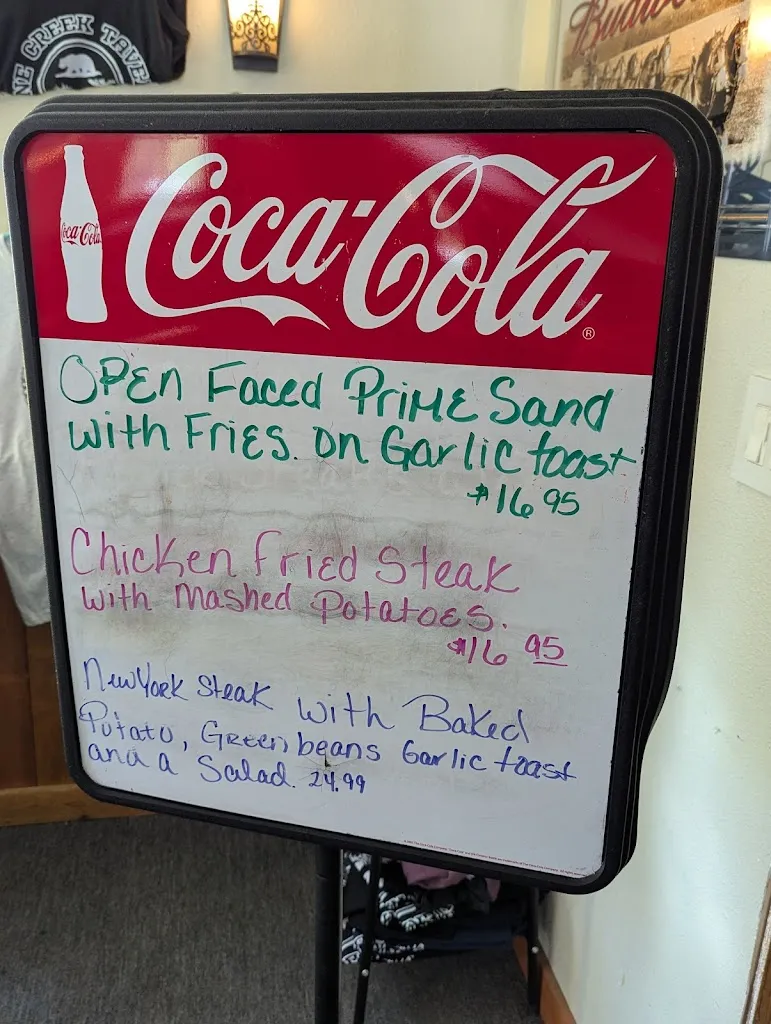 NE CREEK TAVE
Budw
Coca-Cola
Coca-Cola®
OPEn Faced PRiME Sand
with Fries. on Garlic toast
$16 95
Chicken Fried Steak
with Mashed Potatoes.
$16 95
New York Steak with Baked
Potato, Green beans Garlic toast
and a Salad. 24.99